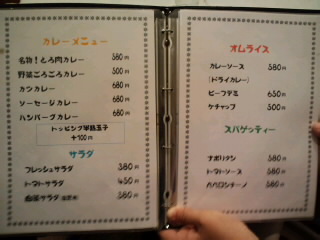 カレーメニュー
名物！とろ肉カレー 580円
野菜ごろごろカレー 500円
カツカレー 680円
ソーセージカレー 680円
ハンバーグカレー 680円
トッピング半熟玉子
+100円
サラダ
フレッシュサラダ 380円
トマトサラダ 450円
サラダ 380円
オムライス
カレーソース 580円
(ドライカレー)
ビーフデミ 630円
ケチャップ 500円
スパゲッティー
ナポリタン 580円
トマトソース 580円
ペペロンチーノ 580円